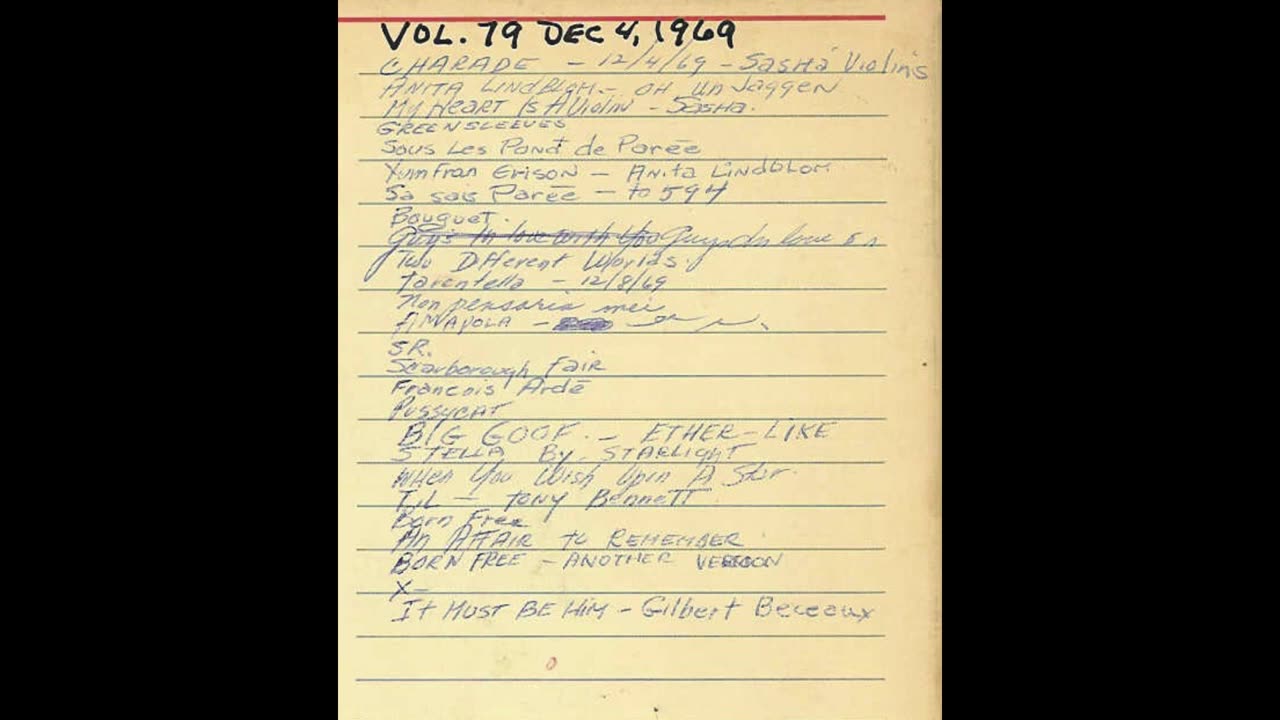 VOL. 79 DEC 4, 1969
CHARADE - 12/4/69 - Sasha Violins
ANITA LINDBLOM - OH UN JAGGEN
My HEART IS A Violin - SASHA.
GREENSLEEVES
Sous Les Pont de Parēe
Fran Erison - Anita Lindblom
Sa sais Parēe - to 594
Bouquet.
Guy's In love with You Guys In love
Two Different Worlds.
Tarentella - 12/8/69
Non pensaria mei
AMAPOLA -
SR.
Scarborough Fair
Francois Ardē
PussyCAT
BIG GOOF. - ETHER-LIKE
STELLA By. STARLIGHT
WHEN You Wish Upon A Star.
TJL - TONY BENNETT
Born Free
AN AFFAIR to REMEMBER
BORN FREE - ANOTHER VERSION
X-
It MUST BE HiM - Gilbert Beceaux